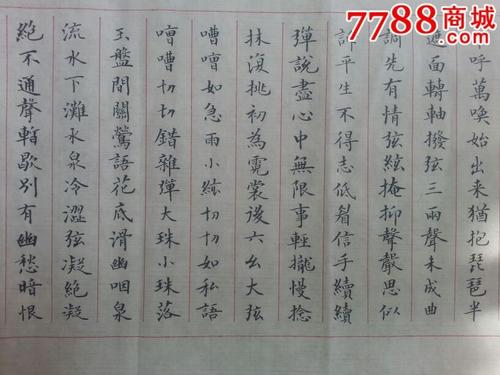 7788商城
呼萬喚始出来猶抱琵琶半
遮面轉軸撥弦三兩聲未成曲
調先有情弦絃掩抑聲聲思似
訴平生不得志低眉信手續續
彈說盡心中無限事輕攏慢捻
抹復挑初為霓裳後六幺大弦
嘈嘈如急雨小絃切切如私語
嘈嘈切切錯雜彈大珠小珠落
玉盤間關鶯語花底滑幽咽泉
流水下灘水泉冷澀弦凝絕凝
絕不通聲暫歇別有幽愁暗恨